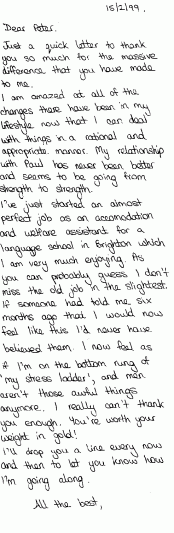 15/2/99.
Dear Peter.
Just a quick letter to thank
you so much for the massive
difference that you have made
to me.
I am amazed at all of the
changes there have been in my
lifestyle now that I can deal
with things in a rational and
appropriate manner. My relationship
with Paul has never been better
and seems to be going from
strength to strength.
I've just started an almost
perfect job as an accomodation
and welfare assistant for a
language school in Brighton which
I am very much enjoying. As
you can probably guess I don't
miss the old job in the slightest.
If someone had told me six
months ago that I would now
feel like this I'd never have
believed them. I now feel as
if I'm on the bottom rung of
'my stress ladder', and men
aren't those awful things
anymore. I really can't thank
you enough. You're worth your
weight in gold!
I'll drop you a line every now
and then to let you know how
I'm going along.
All the best,